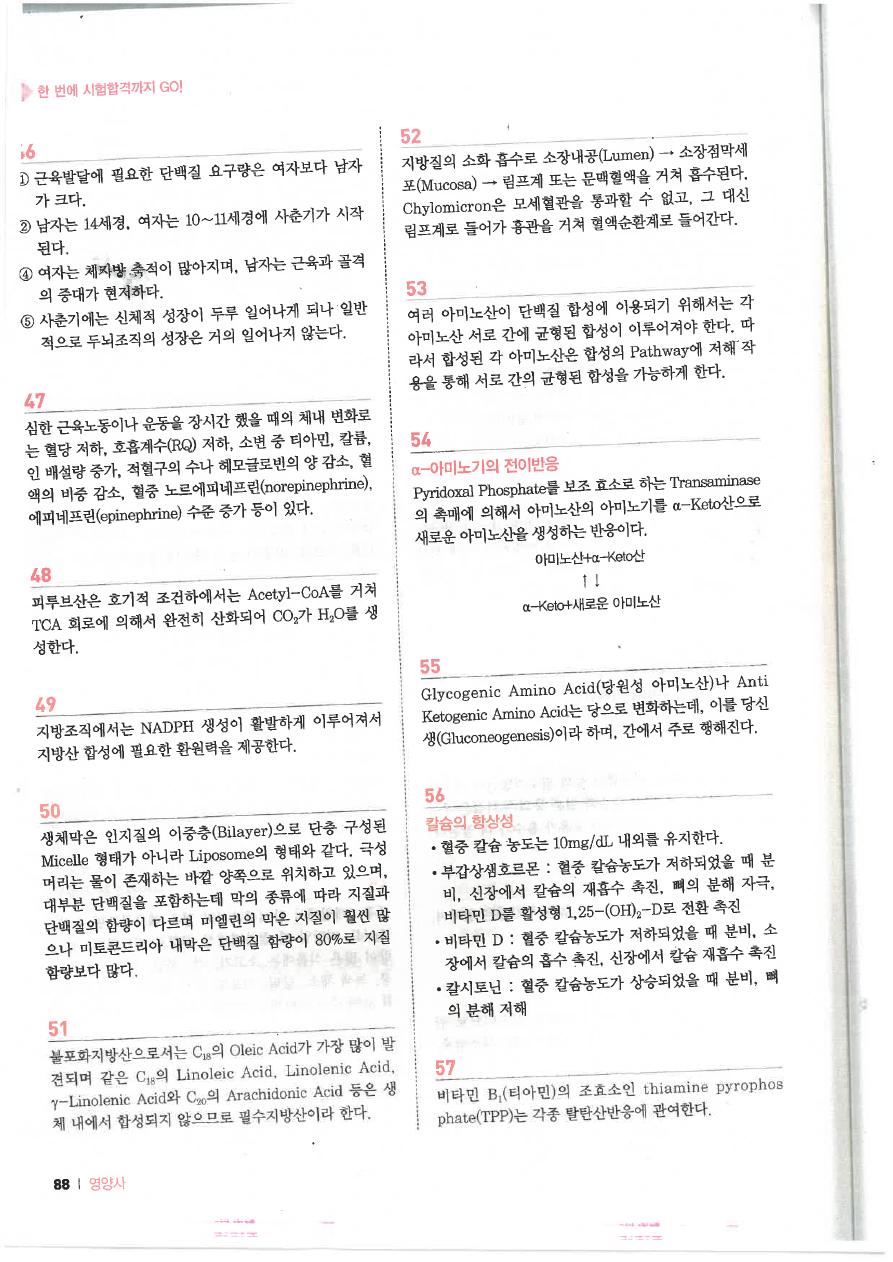 한 번에 시험합격까지 GO!
46
① 근육발달에 필요한 단백질 요구량은 여자보다 남자
가 크다.
② 남자는 14세경, 여자는 10~11세경에 사춘기가 시작
된다.
④ 여자는 체지방 축적이 많아지며, 남자는 근육과 골격
의 증대가 현저하다.
⑤ 사춘기에는 신체적 성장이 두루 일어나게 되나 일반
적으로 두뇌조직의 성장은 거의 일어나지 않는다.
47
심한 근육노동이나 운동을 장시간 했을 때의 체내 변화로
는 혈당 저하, 호흡계수(RQ) 저하, 소변 중 티아민, 칼륨,
인 배설량 증가, 적혈구의 수나 헤모글로빈의 양 감소, 혈
액의 비중 감소, 혈중 노르에피네프린(norepinephrine),
에피네프린(epinephrine) 수준 증가 등이 있다.
48
피루브산은 호기적 조건하에서는 Acetyl-CoA를 거쳐
TCA 회로에 의해서 완전히 산화되어 CO₂가 H₂O를 생
성한다.
49
지방조직에서는 NADPH 생성이 활발하게 이루어져서
지방산 합성에 필요한 환원력을 제공한다.
50
생체막은 인지질의 이중층(Bilayer)으로 단층 구성된
Micelle 형태가 아니라 Liposome의 형태와 같다. 극성
머리는 물이 존재하는 바깥 양쪽으로 위치하고 있으며,
대부분 단백질을 포함하는데 막의 종류에 따라 지질과
단백질의 함량이 다르며 미엘린의 막은 지질이 훨씬 많
으나 미토콘드리아 내막은 단백질 함량이 80%로 지질
함량보다 많다.
51
불포화지방산으로서는 C₁₈의 Oleic Acid가 가장 많이 발
견되며 같은 C₁₈의 Linoleic Acid, Linolenic Acid,
γ-Linolenic Acid와 C₂₀의 Arachidonic Acid 등은 생
체 내에서 합성되지 않으므로 필수지방산이라 한다.
52
지방질의 소화 흡수로 소장내공(Lumen) → 소장점막세
포(Mucosa) → 림프계 또는 문맥혈액을 거쳐 흡수된다.
Chylomicron은 모세혈관을 통과할 수 없고, 그 대신
림프계로 들어가 흉관을 거쳐 혈액순환계로 들어간다.
53
여러 아미노산이 단백질 합성에 이용되기 위해서는 각
아미노산 서로 간에 균형된 합성이 이루어져야 한다. 따
라서 합성된 각 아미노산은 합성의 Pathway에 저해 작
용을 통해 서로 간의 균형된 합성을 가능하게 한다.
54
α-아미노기의 전이반응
Pyridoxal Phosphate를 보조 효소로 하는 Transaminase
의 촉매에 의해서 아미노산의 아미노기를 α-Keto산으로
새로운 아미노산을 생성하는 반응이다.
아미노산+α-Keto산
↑↓
α-Keto+새로운 아미노산
55
Glycogenic Amino Acid(당원성 아미노산)나 Anti
Ketogenic Amino Acid는 당으로 변화하는데, 이를 당신
생(Gluconeogenesis)이라 하며, 간에서 주로 행해진다.
56
칼슘의 항상성
• 혈중 칼슘 농도는 10mg/dL 내외를 유지한다.
• 부갑상샘호르몬 : 혈중 칼슘농도가 저하되었을 때 분
비, 신장에서 칼슘의 재흡수 촉진, 뼈의 분해 자극,
비타민 D를 활성형 1,25-(OH)₂-D로 전환 촉진
• 비타민 D : 혈중 칼슘농도가 저하되었을 때 분비, 소
장에서 칼슘의 흡수 촉진, 신장에서 칼슘 재흡수 촉진
• 칼시토닌 : 혈중 칼슘농도가 상승되었을 때 분비, 뼈
의 분해 저해
57
비타민 B₁(티아민)의 조효소인 thiamine pyrophos
phate(TPP)는 각종 탈탄산반응에 관여한다.
88 | 영양사